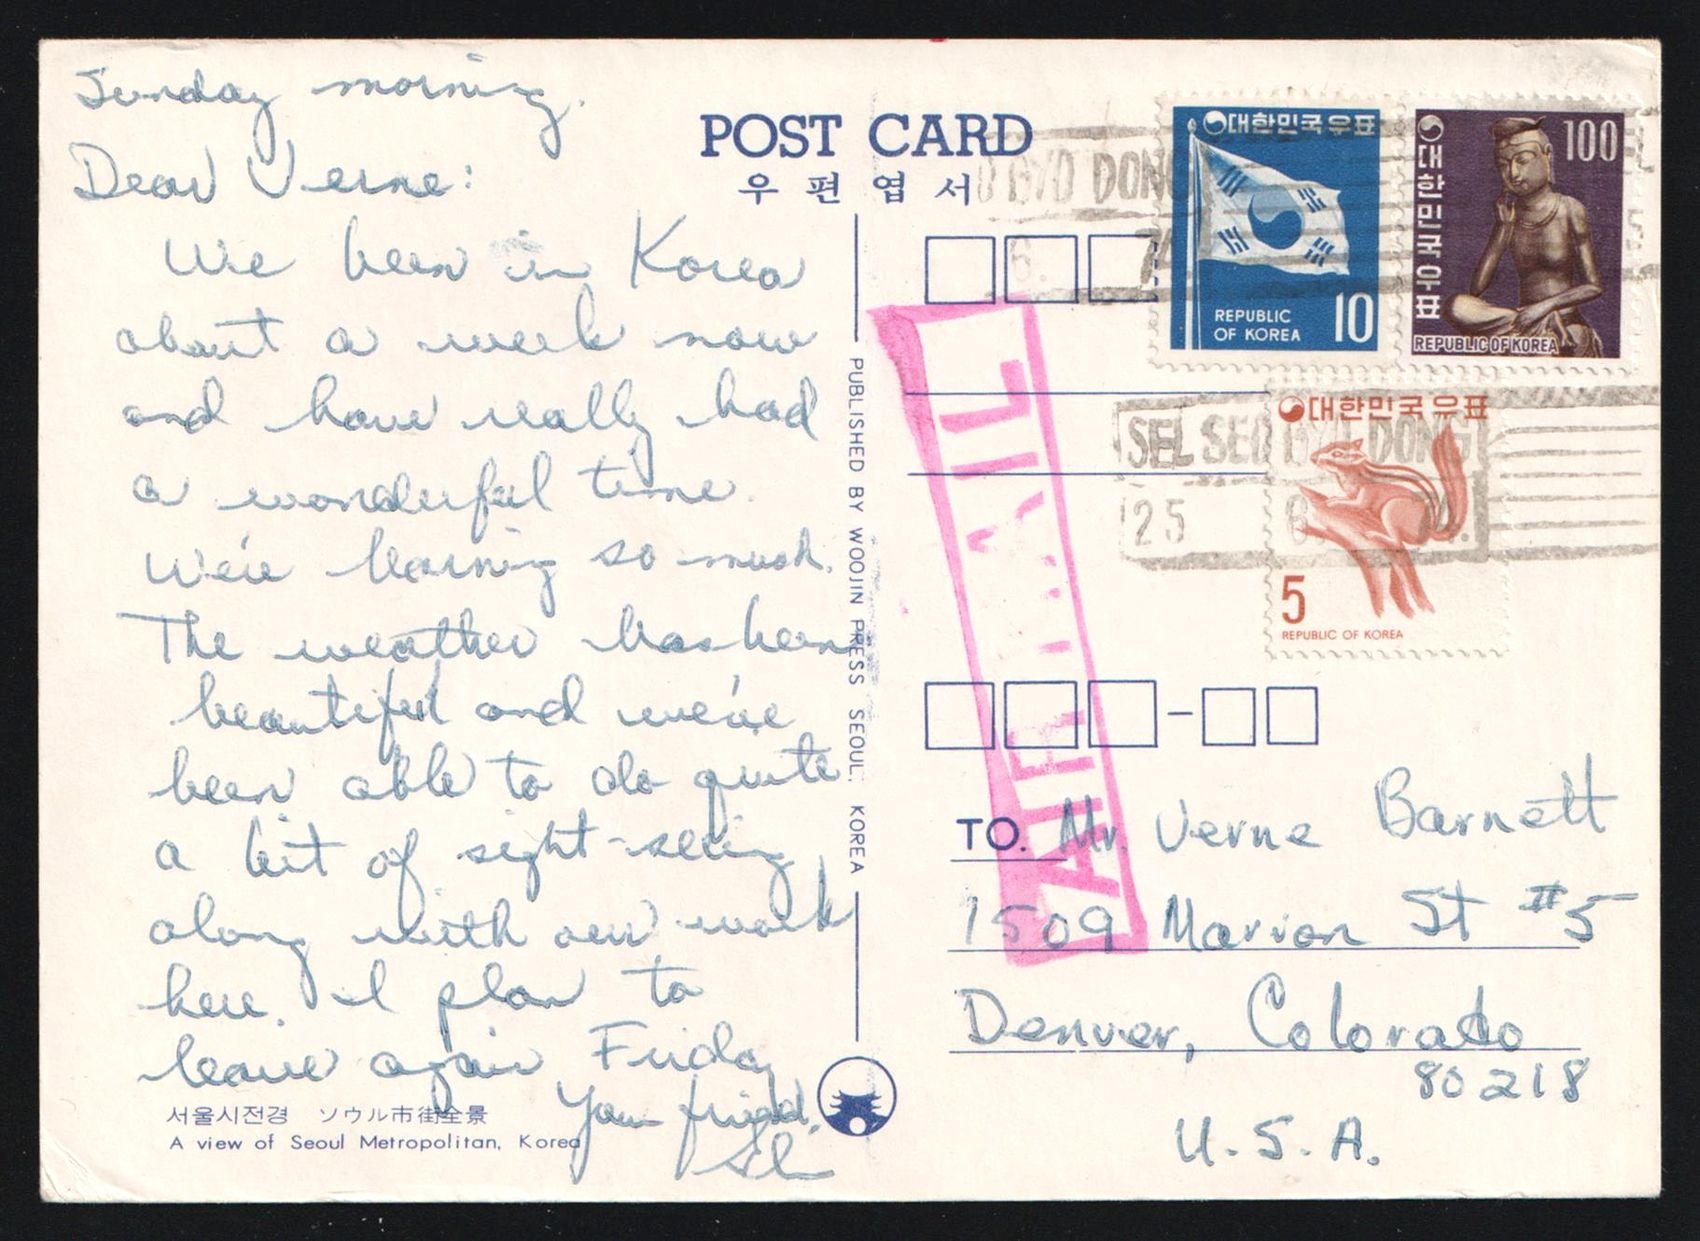 Sunday morning.
Dear Verne:
We been in Korea
about a week now
and have really had
a wonderful time.
We're learning so much.
The weather has been
beautiful and we've
been able to do quite
a bit of sight-seeing
along with our work
here. I plan to
leave again Friday
Your friend,
서울시전경 ソウル市街全景
A view of Seoul Metropolitan, Korea
POST CARD
우편엽서
PUBLISHED BY WOOJIN PRESS SEOUL, KOREA
대한민국우표
REPUBLIC
OF KOREA
10
대한민국우표
100
REPUBLIC OF KOREA
GYO DONG
6. 7
대한민국우표
5
REPUBLIC OF KOREA
SEL SEO GYO DONG
25 6
AIR MAIL
TO. Mr. Verne Barnett
1509 Marion St #5
Denver, Colorado
80218
U.S.A.